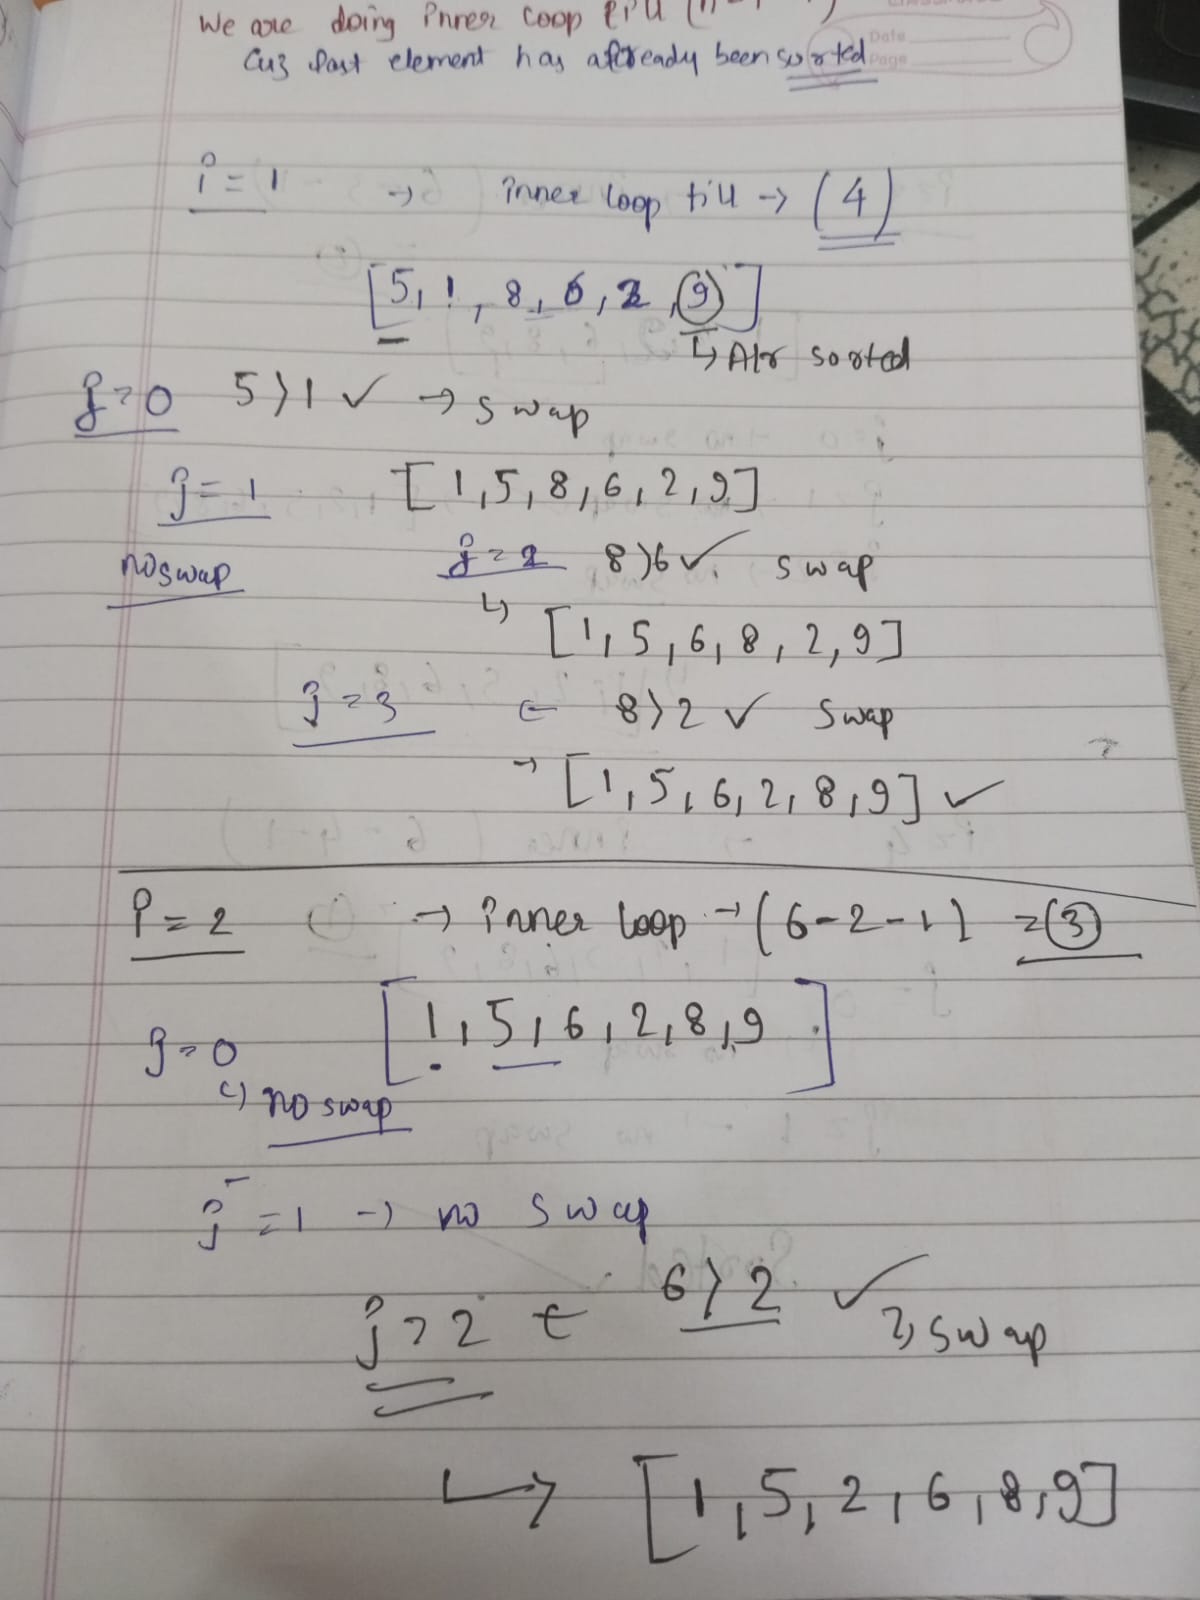 We are doing inner loop till (n-
Cuz last element has already been sorted
Date
Page
i = 1 → inner loop till → (4)
[5, 1, 8, 6, 2, 9]
↳ Alr sorted
j = 0 5 > 1 ✓ → swap
j = 1 [1, 5, 8, 6, 2, 9]
no swap j = 2 8 > 6 ✓ swap
↳ [1, 5, 6, 8, 2, 9]
j = 3 ← 8 > 2 ✓ swap
→ [1, 5, 6, 2, 8, 9] ✓
i = 2 → inner loop → (6-2-1) = 3
[1, 5, 6, 2, 8, 9]
j = 0
↳ no swap
j = 1 → no swap
j = 2 ← 6 > 2 ✓
↳ swap
↳ [1, 5, 2, 6, 8, 9]